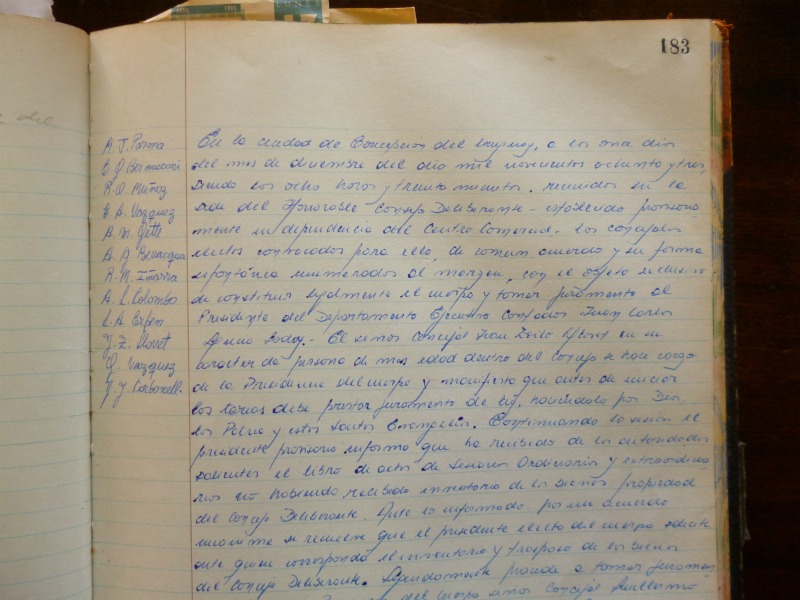 183
A. J. Parma
R. O. Muñoz
E. A. Vazquez
A. M. Gette
R. M. Iñarra
A. L. Colombo
L. A. Erpen
J. Z. Llovet
O. Vazquez
J. J. Carbonell
En la ciudad de Concepción del Uruguay, a los once días
del mes de diciembre del año mil novecientos ochenta y tres,
siendo las ocho horas y treinta minutos, reunidos en la
sede del Honorable Concejo Deliberante - establecida provisoria
mente en dependencia del Centro Comercial - los concejales
electos convocados para ello, de común acuerdo y en forma
espontánea enumerados al margen, con el objeto exclusivo
de constituir legalmente el cuerpo y tomar juramento al
Presidente del Departamento Ejecutivo Contador Juan Carlos
El señor Concejal Juan Zoilo Llovet en su
caracter de persona de mas edad dentro del Concejo se hace cargo
de la Presidencia del cuerpo y manifiesta que antes de iniciar
las tareas debe prestar juramento de ley, haciéndolo por Dios,
la Patria y estos Santos Evangelios. Continuando la sesión el
presidente provisorio informa que ha recibido de las autoridades
salientes el libro de actas de Sesiones Ordinarias y extraordina
rias no habiendo recibido inventario de los bienes propiedad
del Concejo Deliberante. Ante lo informado por un acuerdo
unánime se resuelve que el presidente electo del cuerpo solicite
ante quien corresponda el inventario y traspaso de los bienes
del Concejo Deliberante. Seguidamente procede a tomar juramen
del Cuerpo señor Concejal Guillermo